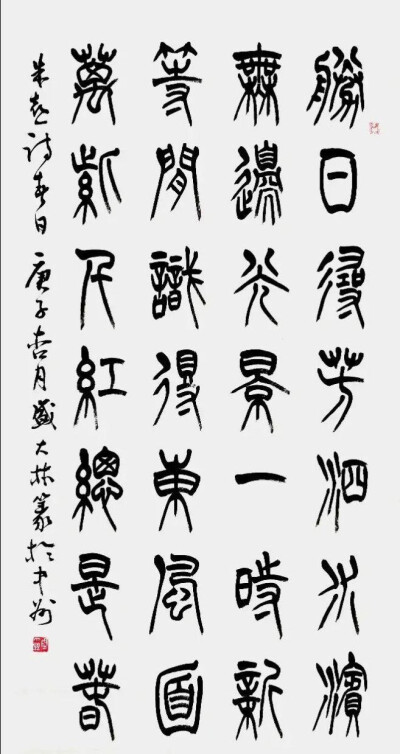 勝日尋芳泗水濱
無邊光景一時新
等閒識得東風面
萬紫千紅總是春
朱熹詩春日 庚子杏月盛大林篆於中州